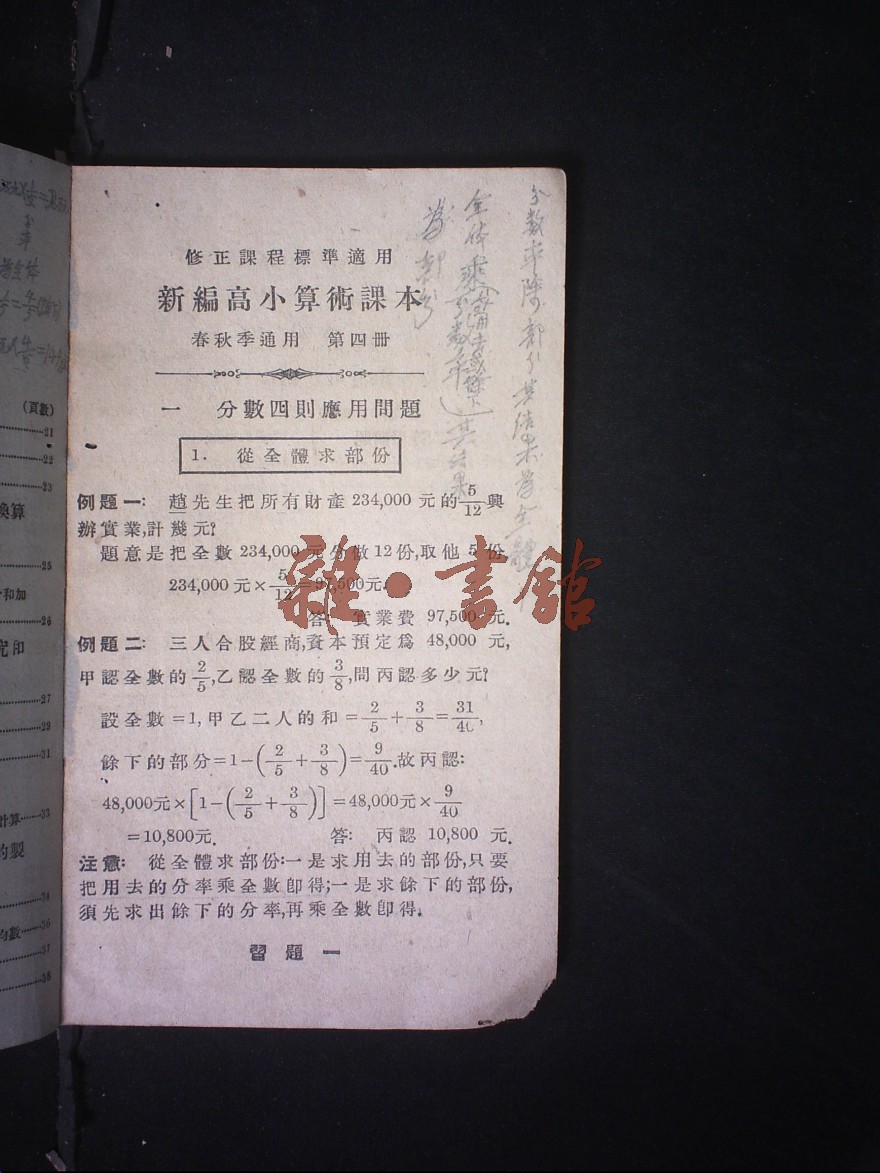 修正課程標準適用
新編高小算術課本
春秋季通用 第四册
一 分數四則應用問題
1. 從全體求部份
例題一: 趙先生把所有財產 234,000 元的 5/12 興
辦實業,計幾元?
題意是把全數 234,000 元分做 12 份,取他 5 份.
234,000 元 × 5/12 = 97,500元.
答: 實業費 97,500 元.
例題二: 三人合股經商,資本預定爲 48,000 元,
甲認全數的 2/5,乙認全數的 3/8,問丙認多少元?
設全數 =1,甲乙二人的和 = 2/5 + 3/8 = 31/40,
餘下的部分 = 1-(2/5 + 3/8) = 9/40.故丙認:
48,000元 × [1-(2/5 + 3/8)] = 48,000元 × 9/40
=10,800元. 答: 丙認 10,800 元.
注意: 從全體求部份:一是求用去的部份,只要
把用去的分率乘全數卽得;一是求餘下的部份,
須先求出餘下的分率,再乘全數卽得.
習題一
分數率除部分其結果爲全體
全体乘分數率其結果
爲部分
雜·書館
(頁數)
21
22
23
換算
25
和加
26
究印
27
29
31
計算 33
的製
34
均數 36
37
38